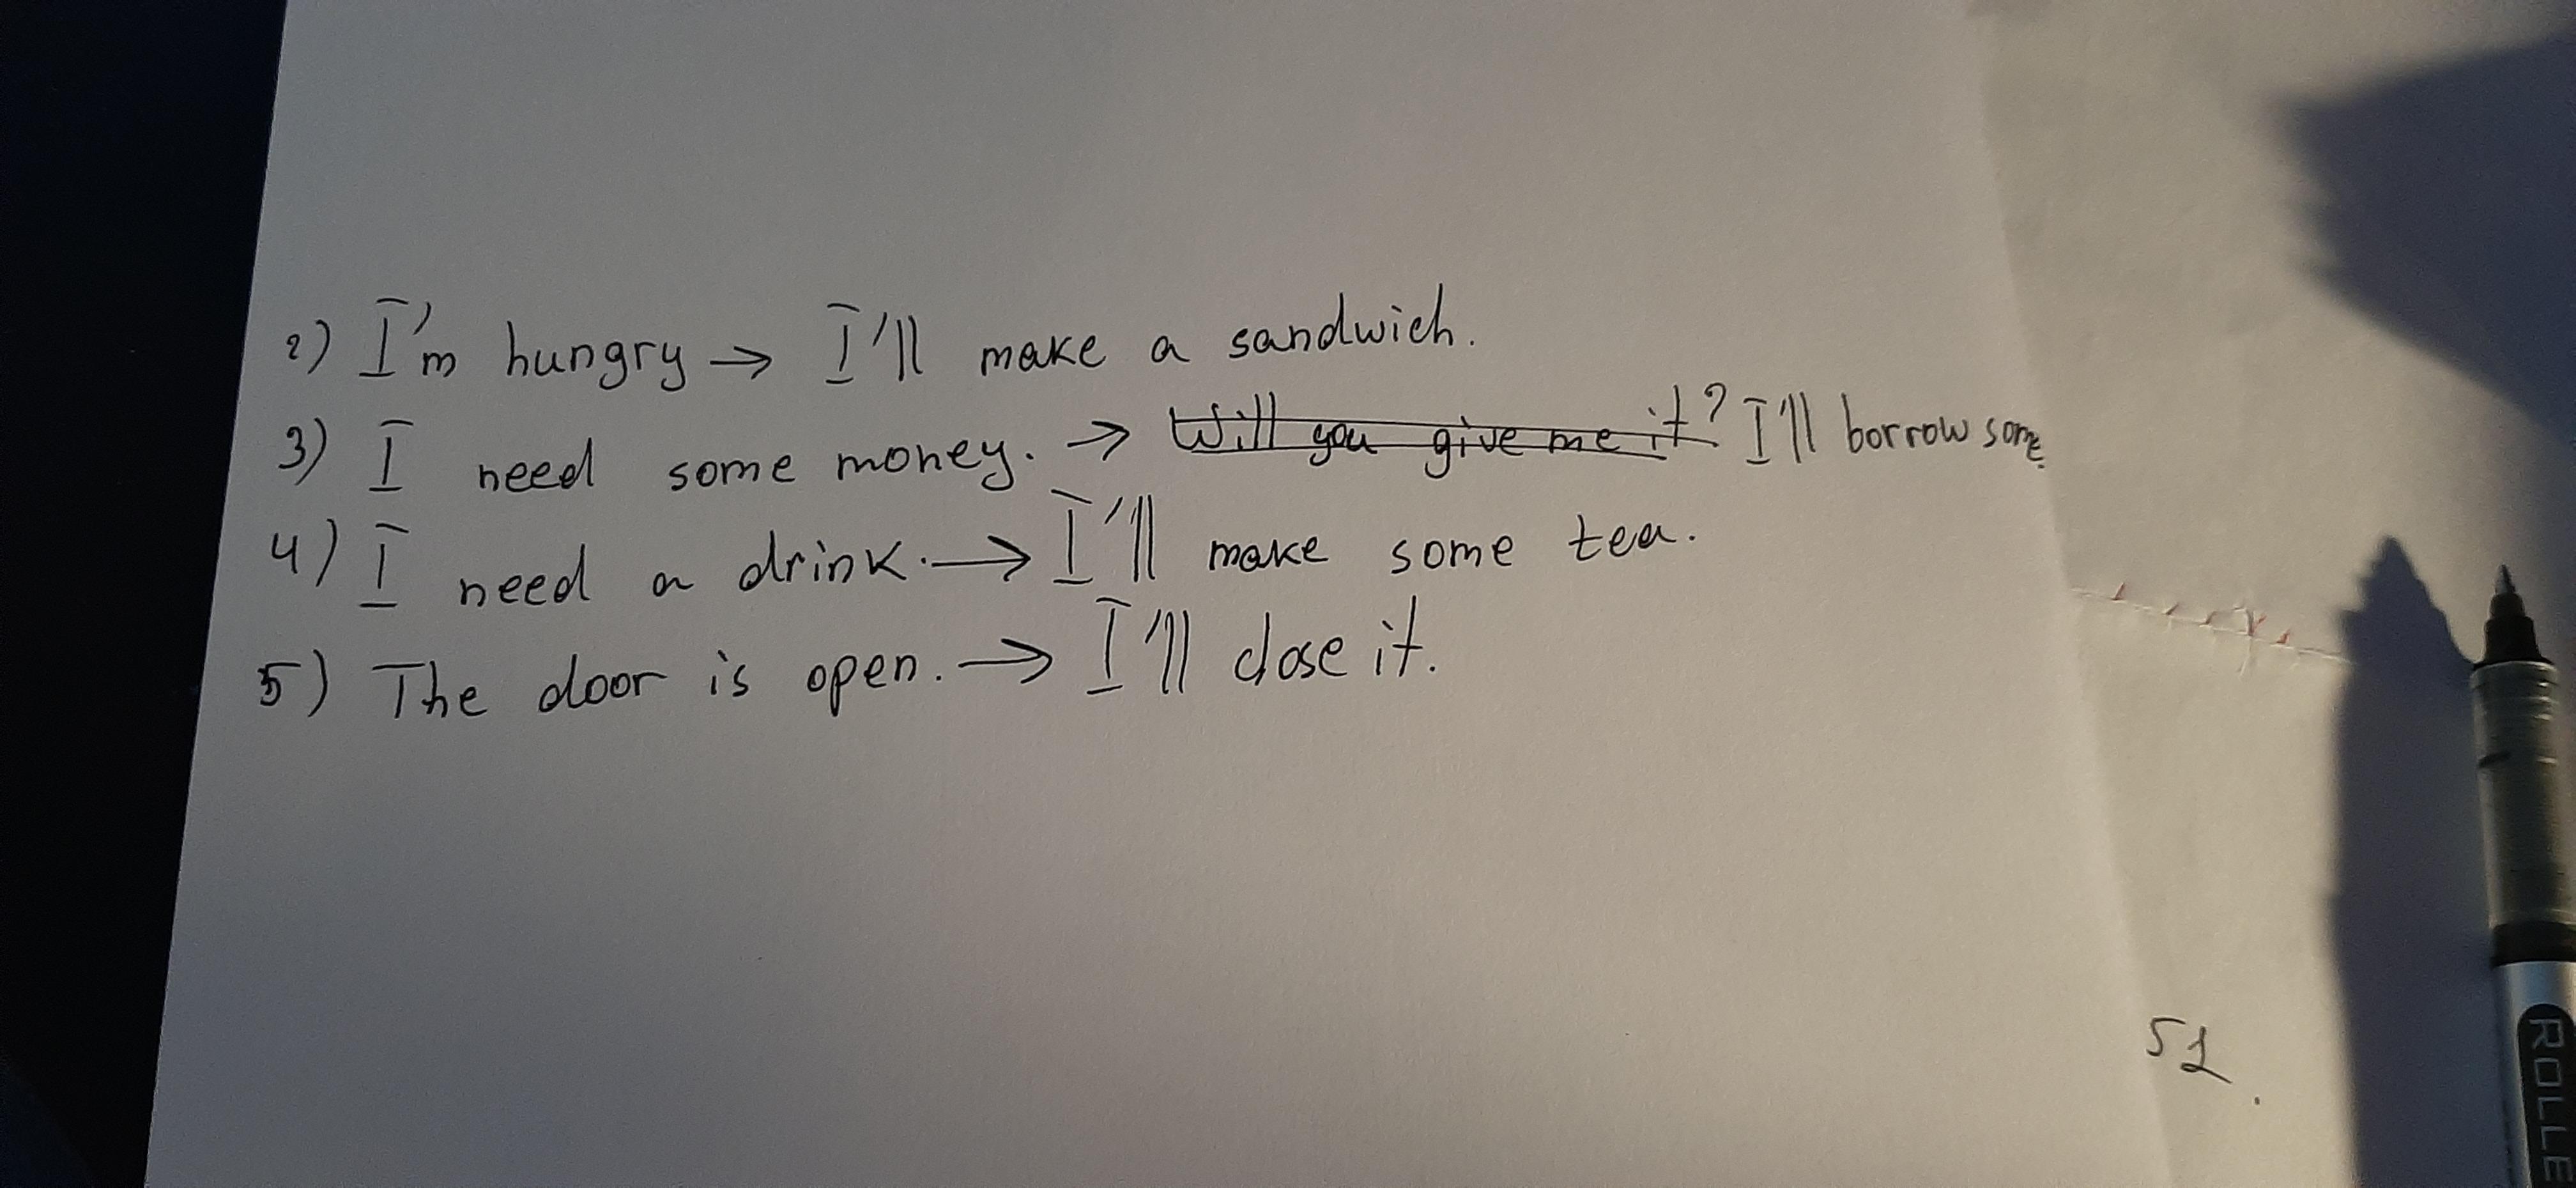 2) I'm hungry → I'll make a sandwich.
3) I need some money. → Will you give me it? I'll borrow some.
4) I need a drink. → I'll make some tea.
5) The door is open. → I'll close it.
51
ROLLE